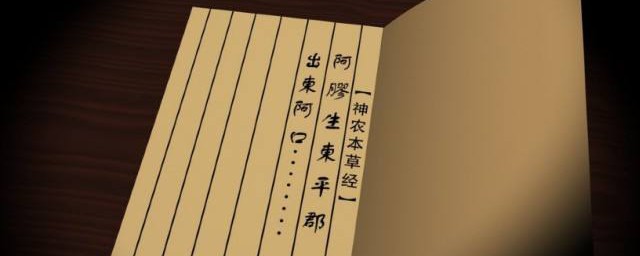 【神农本草经】
阿膠生東平郡
出東阿口………